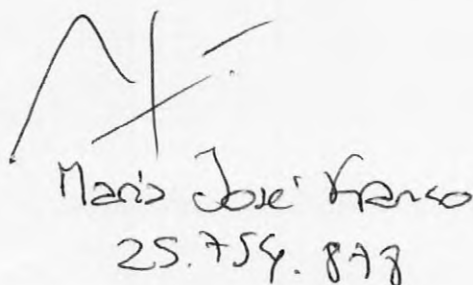 María José Franco
25.754.878